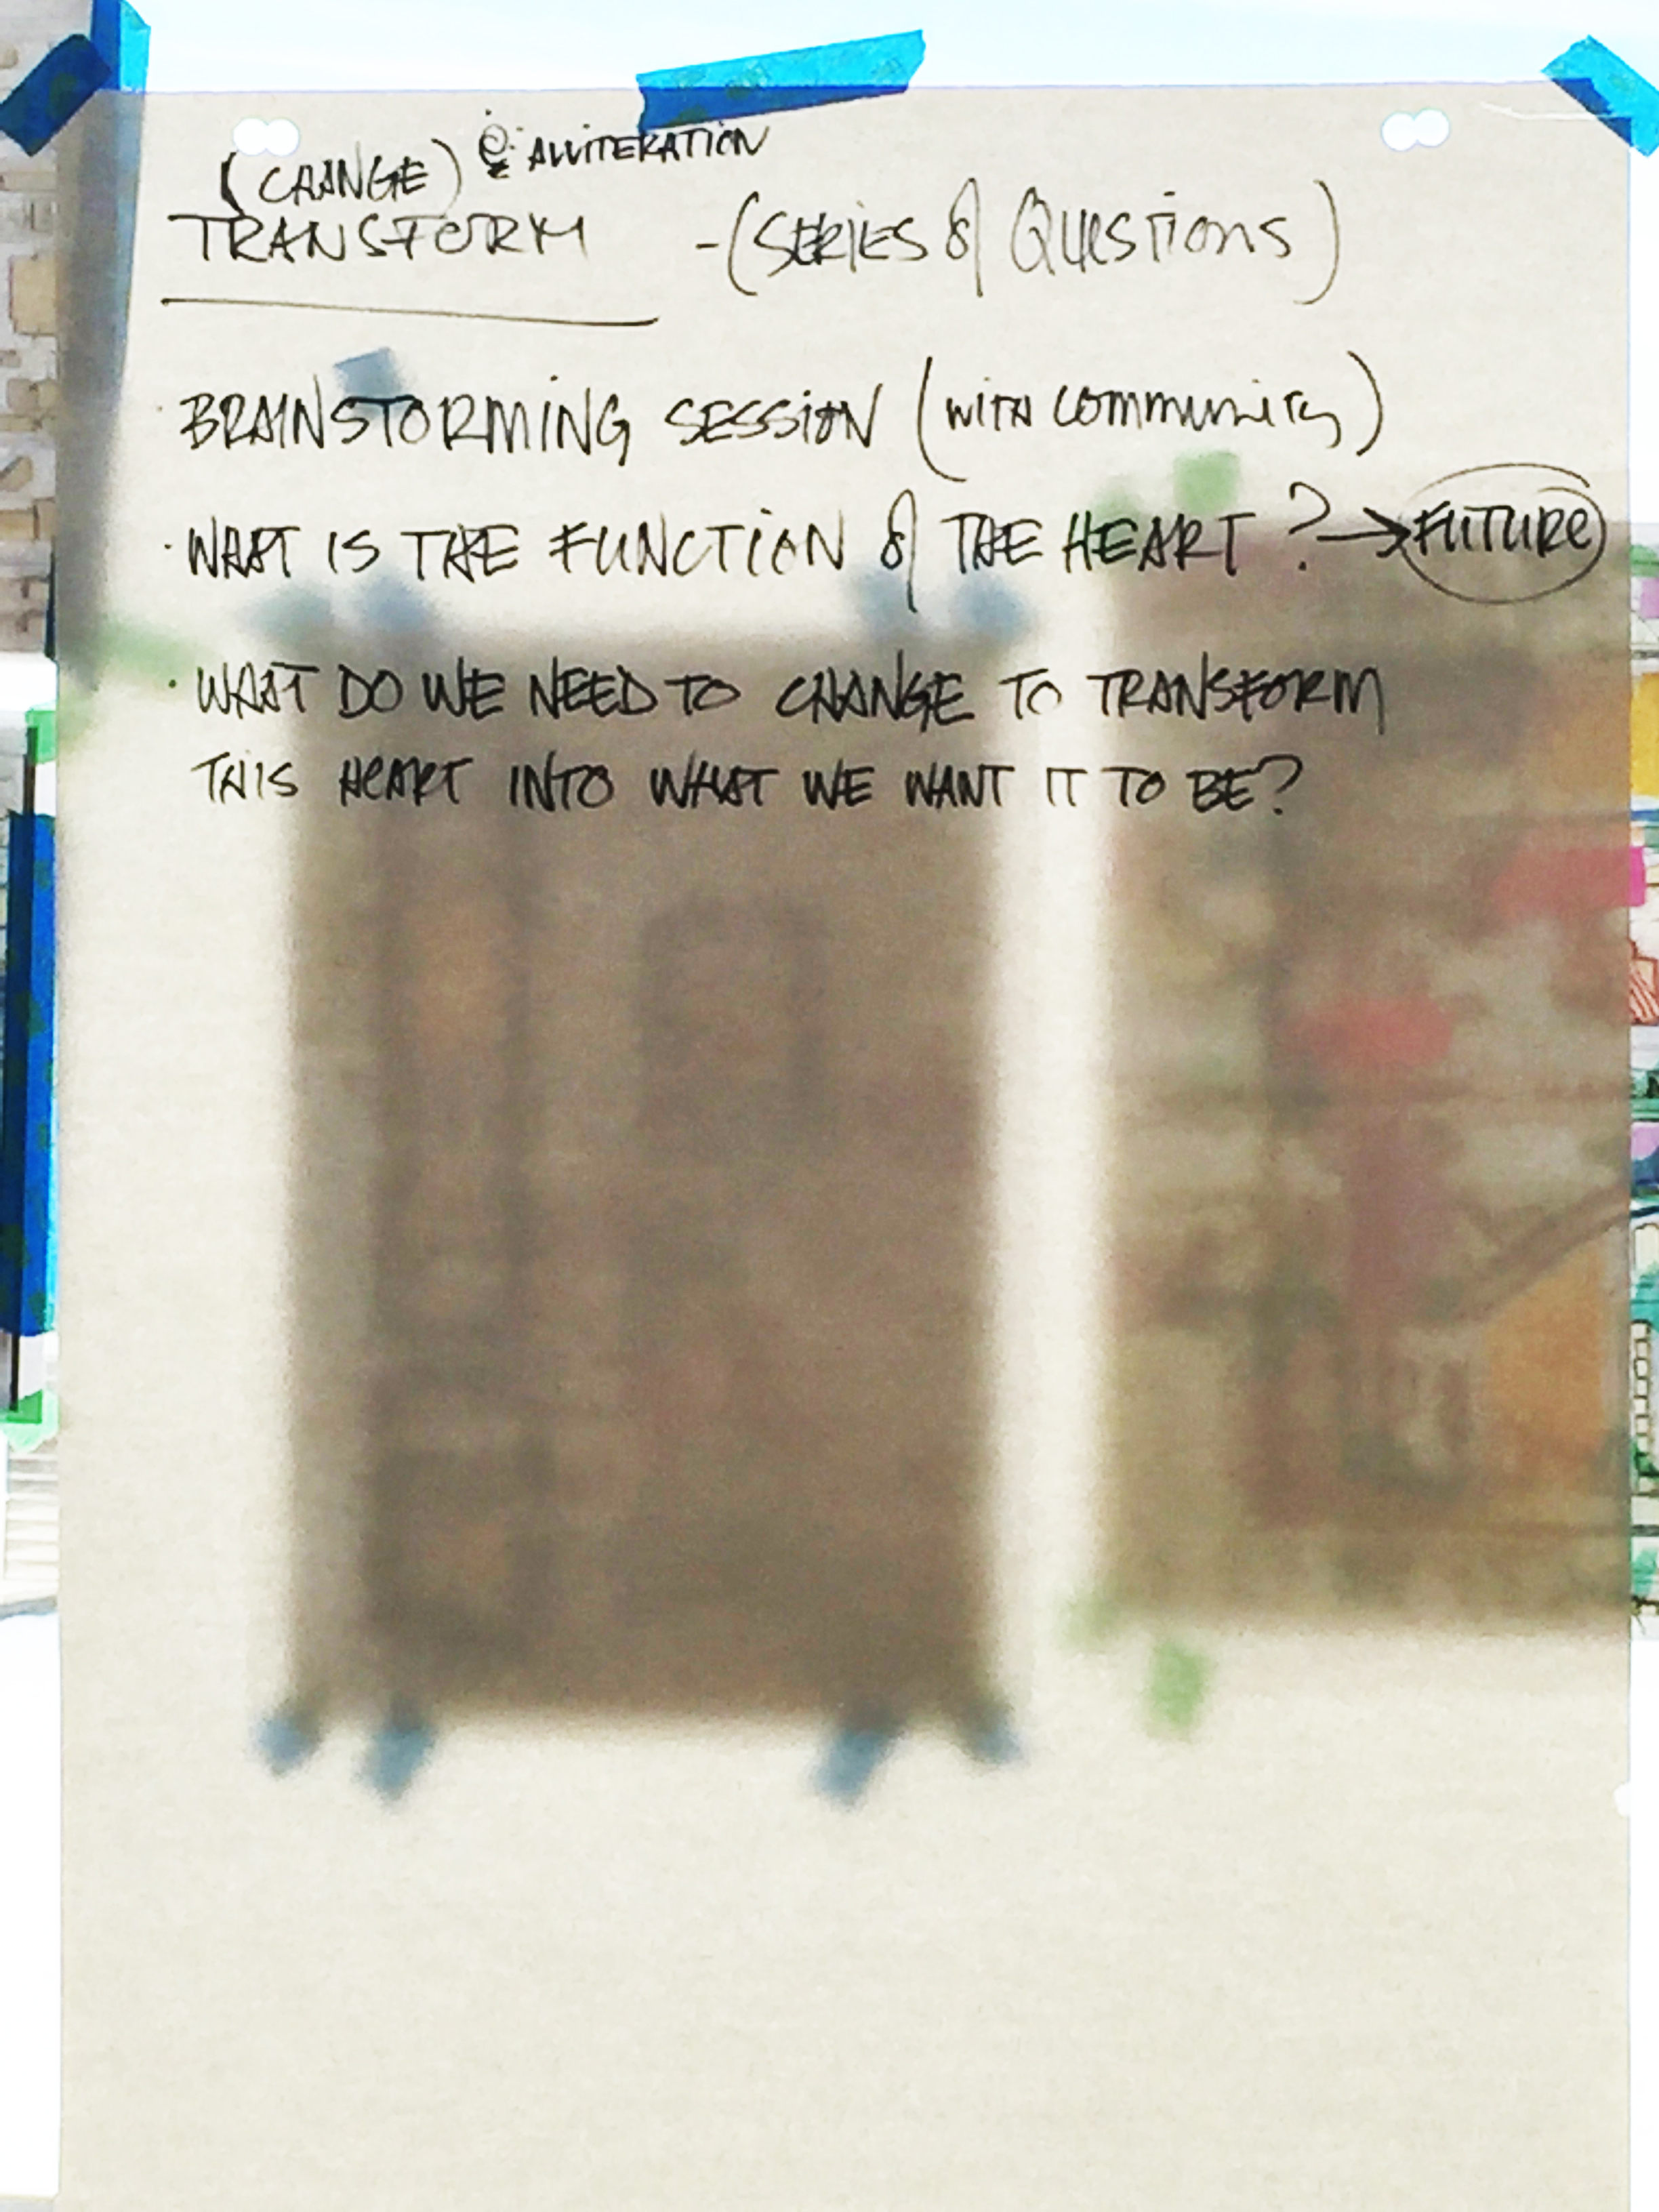 (CHANGE) ALLITERATION
TRANSFORM - (SERIES of QUESTIONS)
· BRAINSTORMING SESSION (WITH COMMUNITY)
· WHAT IS THE FUNCTION of THE HEART? → FUTURE
· WHAT DO WE NEED TO CHANGE TO TRANSFORM
THIS HEART INTO WHAT WE WANT IT TO BE?